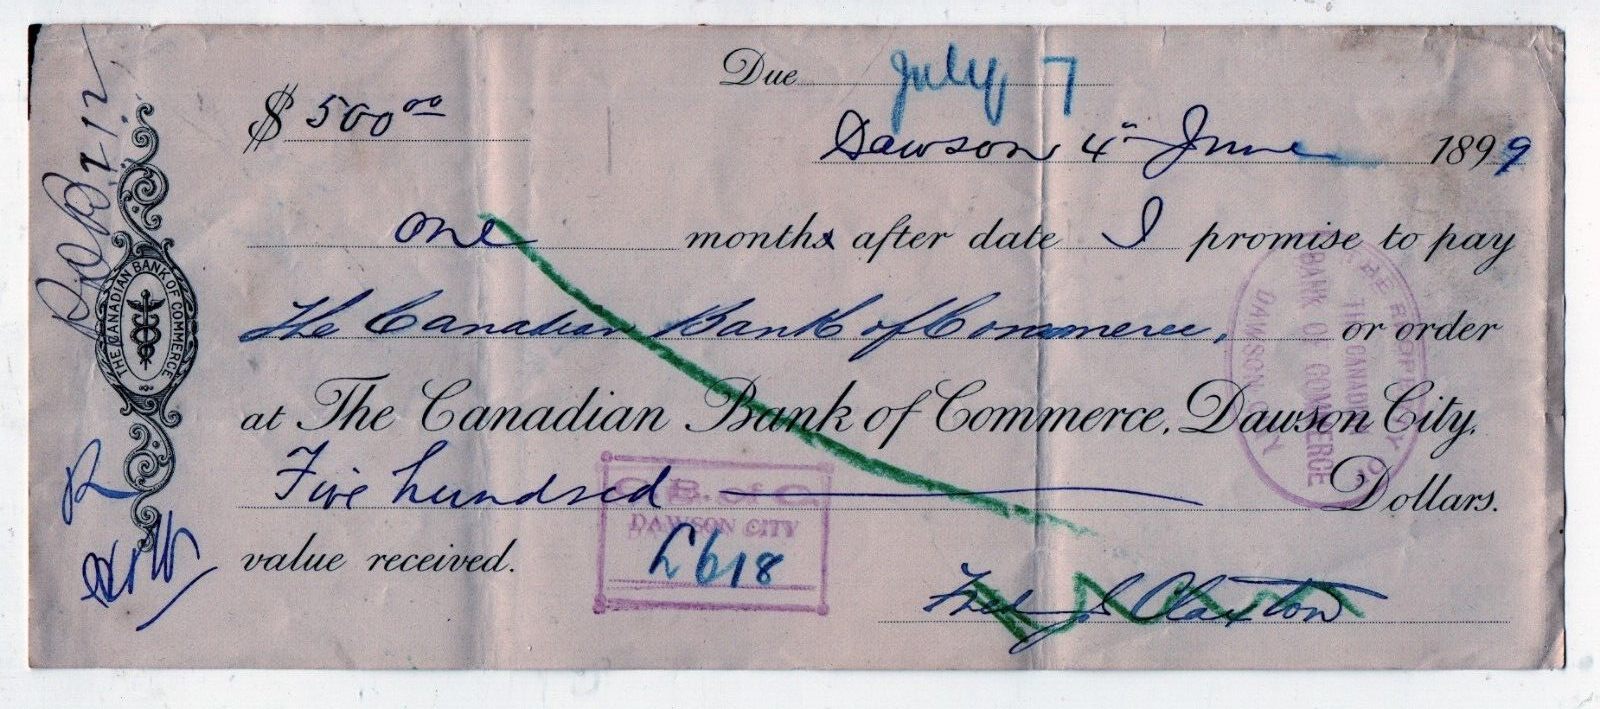 Due July 7
$ 500 00
Dawson 4th June 1899
one months after date I promise to pay
The Canadian Bank of Commerce, or order
at The Canadian Bank of Commerce, Dawson City,
Five hundred Dollars.
value received.
Fred J. Claxton
THE CANADIAN BANK OF COMMERCE
C. B. of C.
DAWSON CITY
THE PROPERTY OF
THE CANADIAN
BANK OF COMMERCE
DAWSON CITY